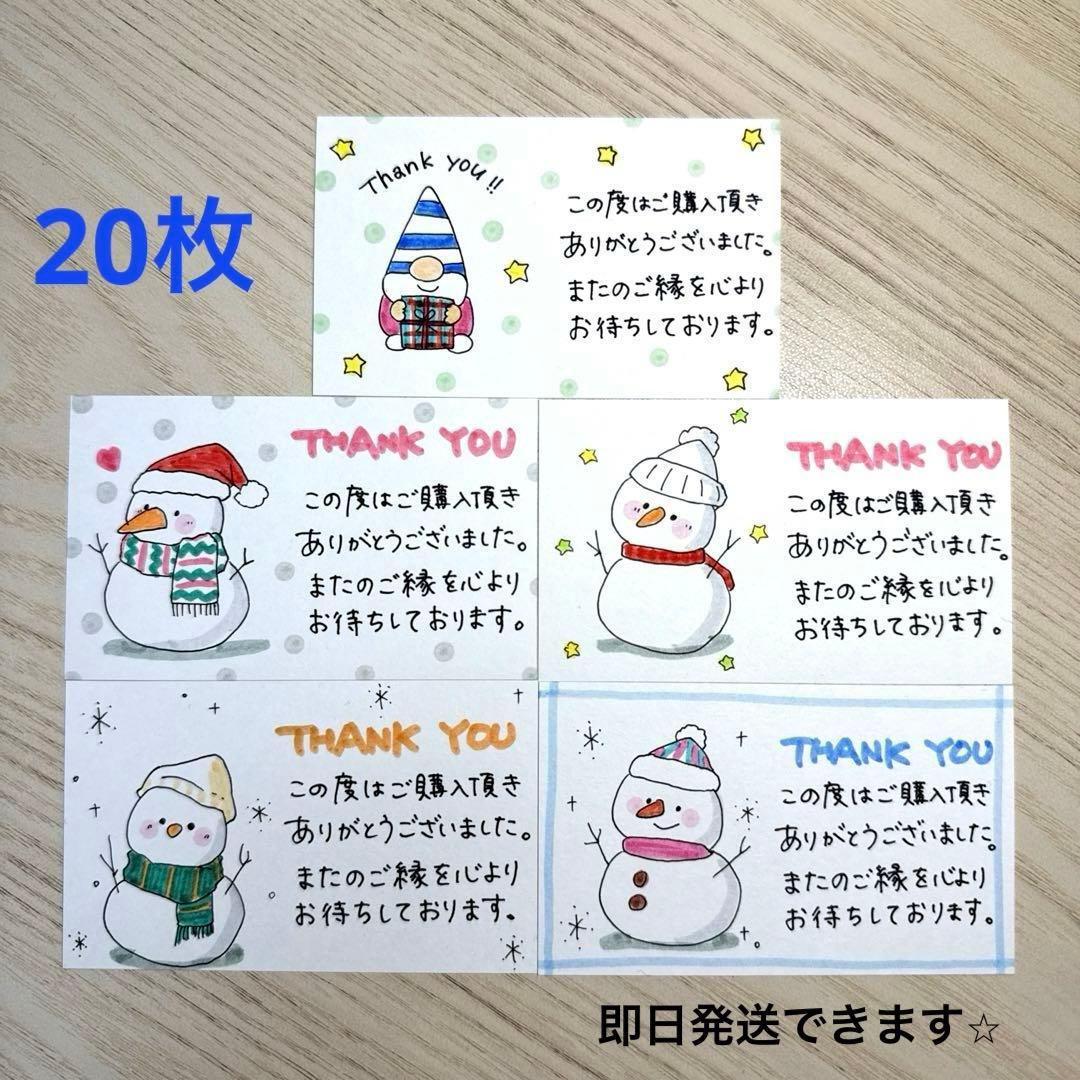 20枚
Thank you!!
この度はご購入頂き
ありがとうございました。
またのご縁を心より
お待ちしております。
THANK YOU
この度はご購入頂き
ありがとうございました。
またのご縁を心より
お待ちしております。
THANK YOU
この度はご購入頂き
ありがとうございました。
またのご縁を心より
お待ちしております。
THANK YOU
この度はご購入頂き
ありがとうございました。
またのご縁を心より
お待ちしております。
THANK YOU
この度はご購入頂き
ありがとうございました。
またのご縁を心より
お待ちしております。
即日発送できます☆